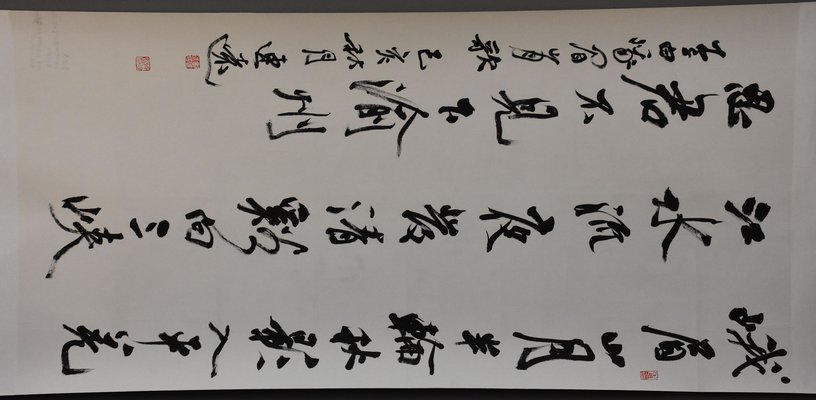 峨眉山月半輪秋影入平羌
江水流夜發清谿向三峽
思君不見下渝州
李白峩眉山月歌 己亥秋月